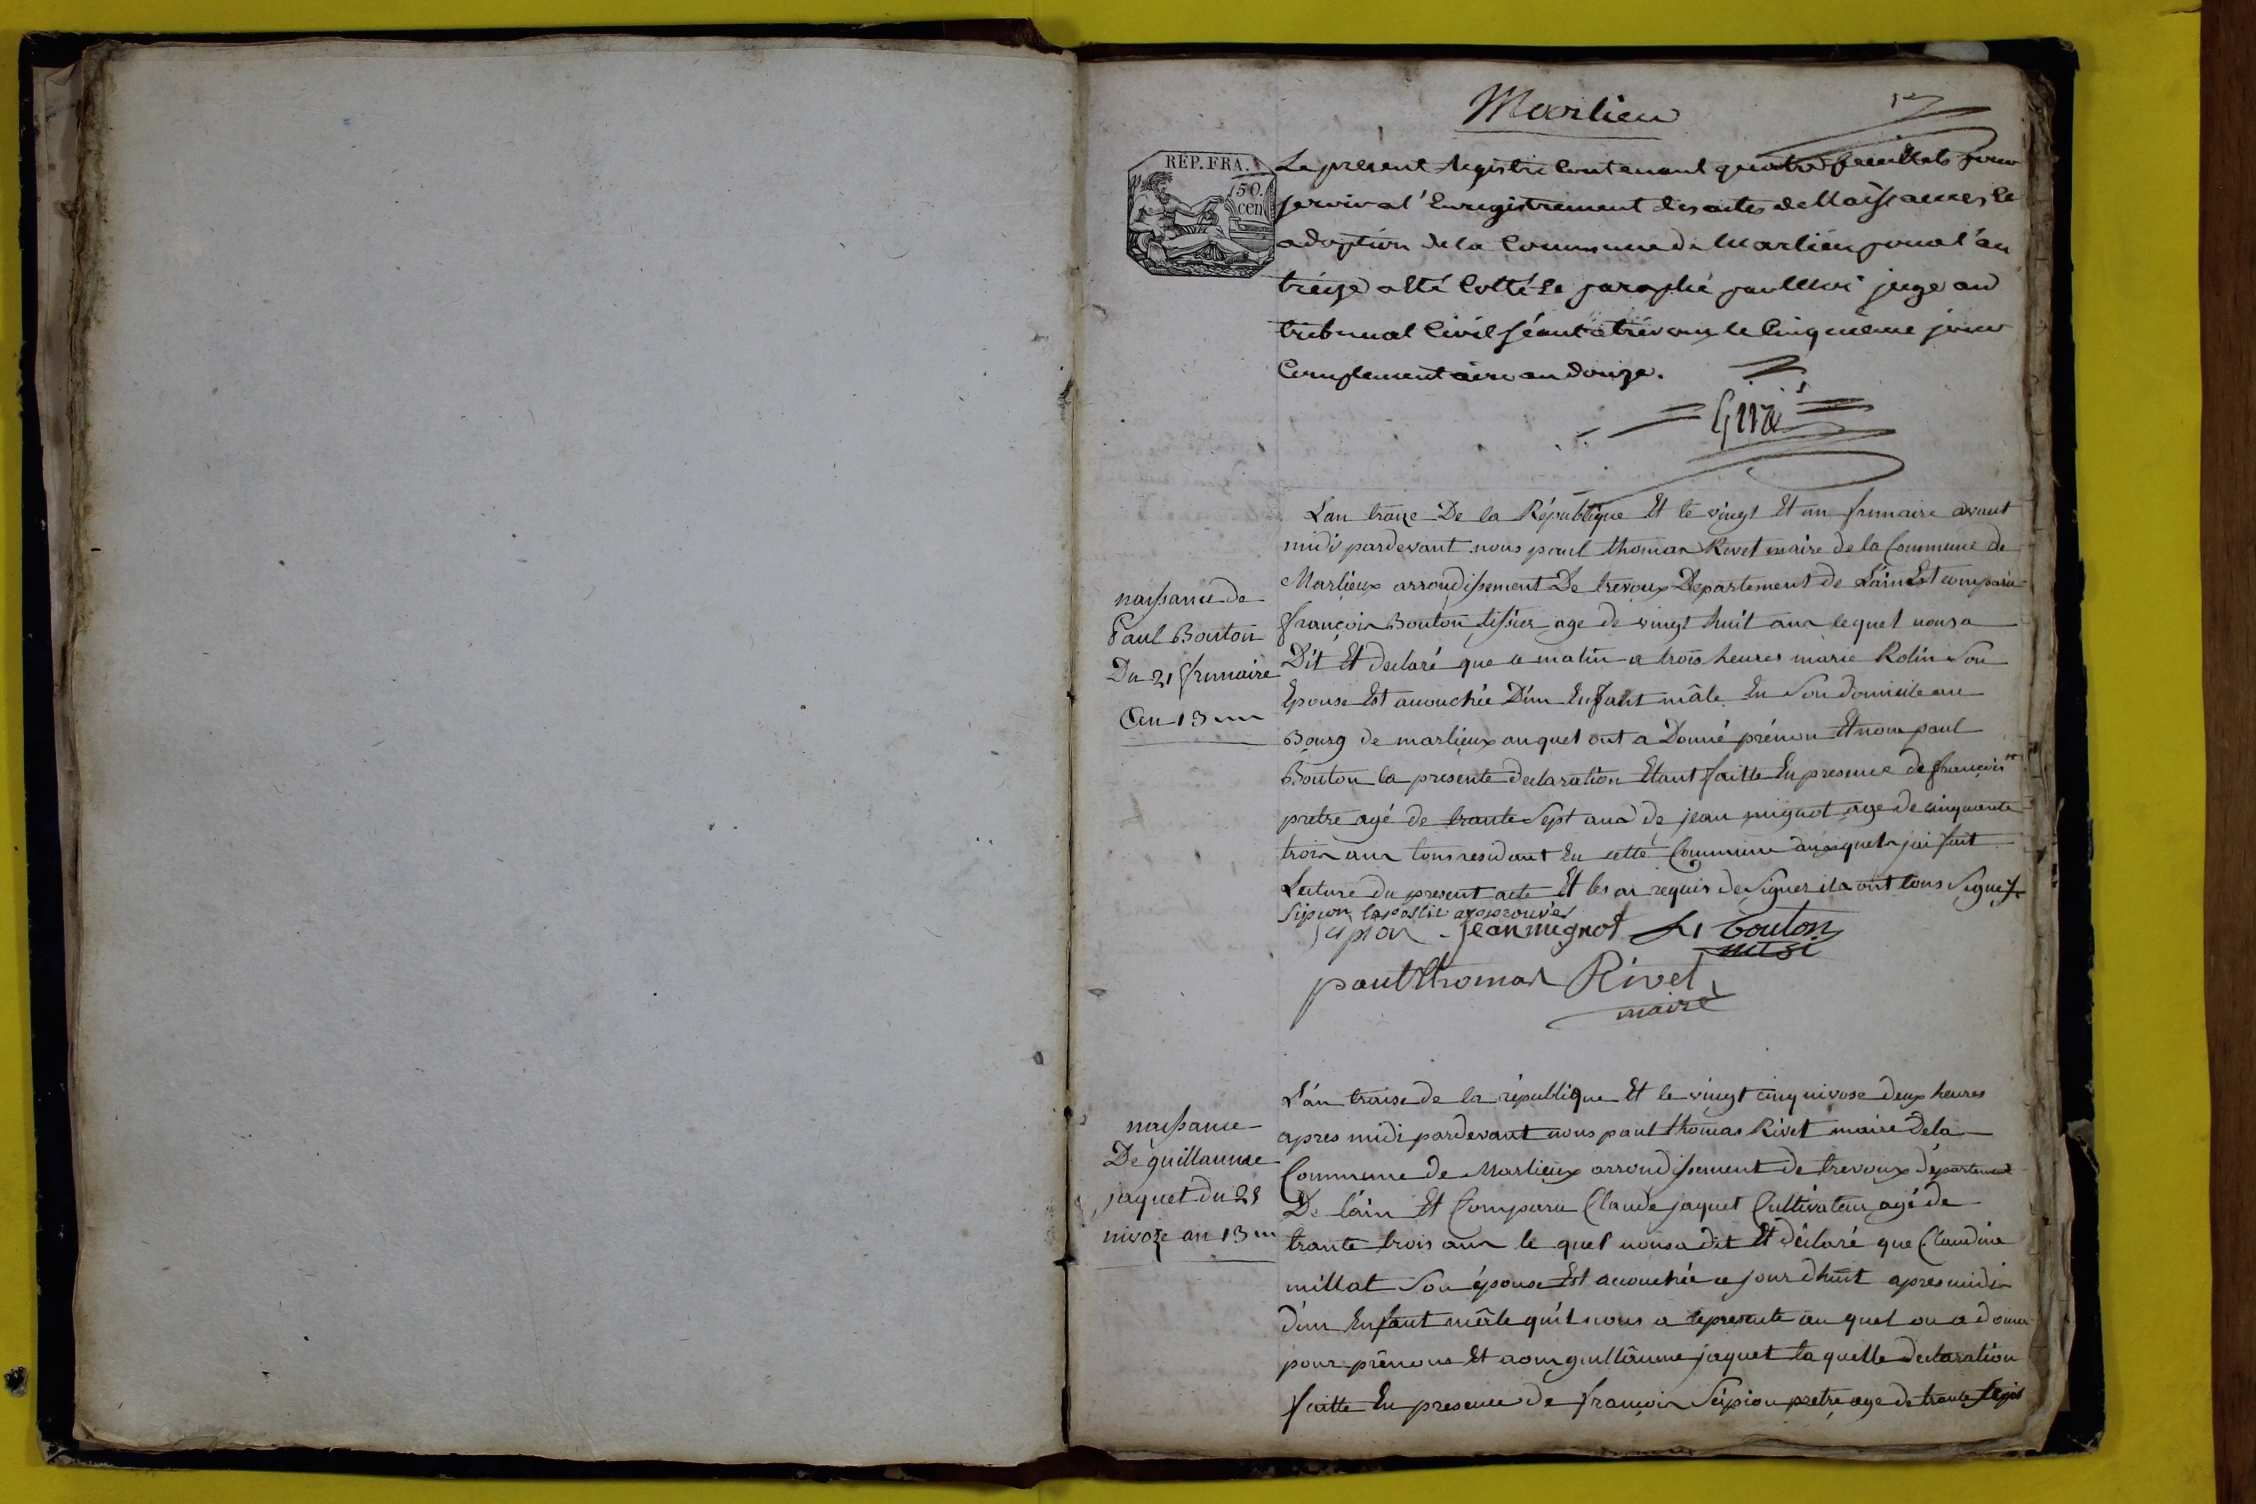 Marlieu
REP. FRA.
150.
cen
Le present Registre Contenant quatre feuillets pour
servir a l'Enregistrement des actes de Naissances Et
adoption de la Commune de Marlieu pour l'an
treize a Eté Cotté Et paraphé par Moi juge au
tribunal Civil séant a trévoux le Cinquième jour
Complementaire an douze.
naissance de
Paul Bouton
Du 21 frimaire
an 13
L'an traize De la République Et le vingt Et un frimaire avant
midi pardevant nous paul thomas Rivet maire de la Commune de
Marlieux arrondissement De trevoux Departement de L'ain Est comparu
françois Bouton tissier age de vingt huit ans lequel nous a
Dit Et declaré que ce matin a trois heures marie Rolin Son
Epouse Est acouchée D'un Enfant mâle En Son domicile au
Bourg de marlieux auquel ont a Donné prénom Et nom paul
Bouton la presente declaration Etant faitte En presence de françois
pretre agé de trante Sept ans de jean mignot age de cinquante
trois ans tous residant En cette Commune auxquels jai fait
Lecture du present acte Et les ai requis de Signer ils ont tous Signé
Sipion lapostil approuvés
Sipion jean mignot bouton
paul thomas Rivet
maire
naissance
De guillaume
jaquet du 25
nivoze an 13
L'an traise de la république Et le vingt cinq nivose deux heures
apres midi pardevant nous paul thomas Rivet maire de la
Commune de Marlieux arrondissement de trevoux département
De l'ain Et Comparu Claude jaquet Cultivateur agé de
trante trois ans le quel nous a dit Et déclaré que Claudine
millat Son épouse Est acouchée ce jourdhuit apres midi
d'un Enfant mâle qu'il nous a representé au quel on a donné
pour prénoms Et nom guillaume jaquet la quelle declaration
faitte En presence de françois Sipion pretre age de trante Sept